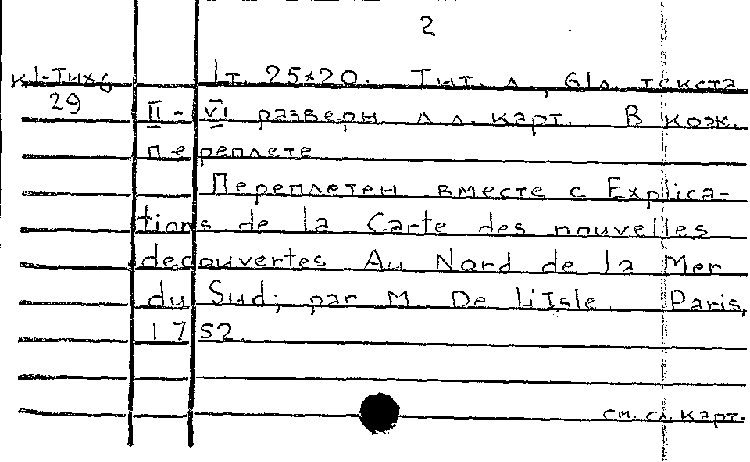 2
К1-Тих6 1т. 25×20. Тит. л., 61л. текста
29 II-VI разверн. л л. карт. В кож.
переплете
Переплетен вместе с Explica-
tions de la Carte des nouvelles
decouvertes Au Nord de la Mer
du Sud; par M. De L'Isle. Paris,
1752.
см. сл. карт.